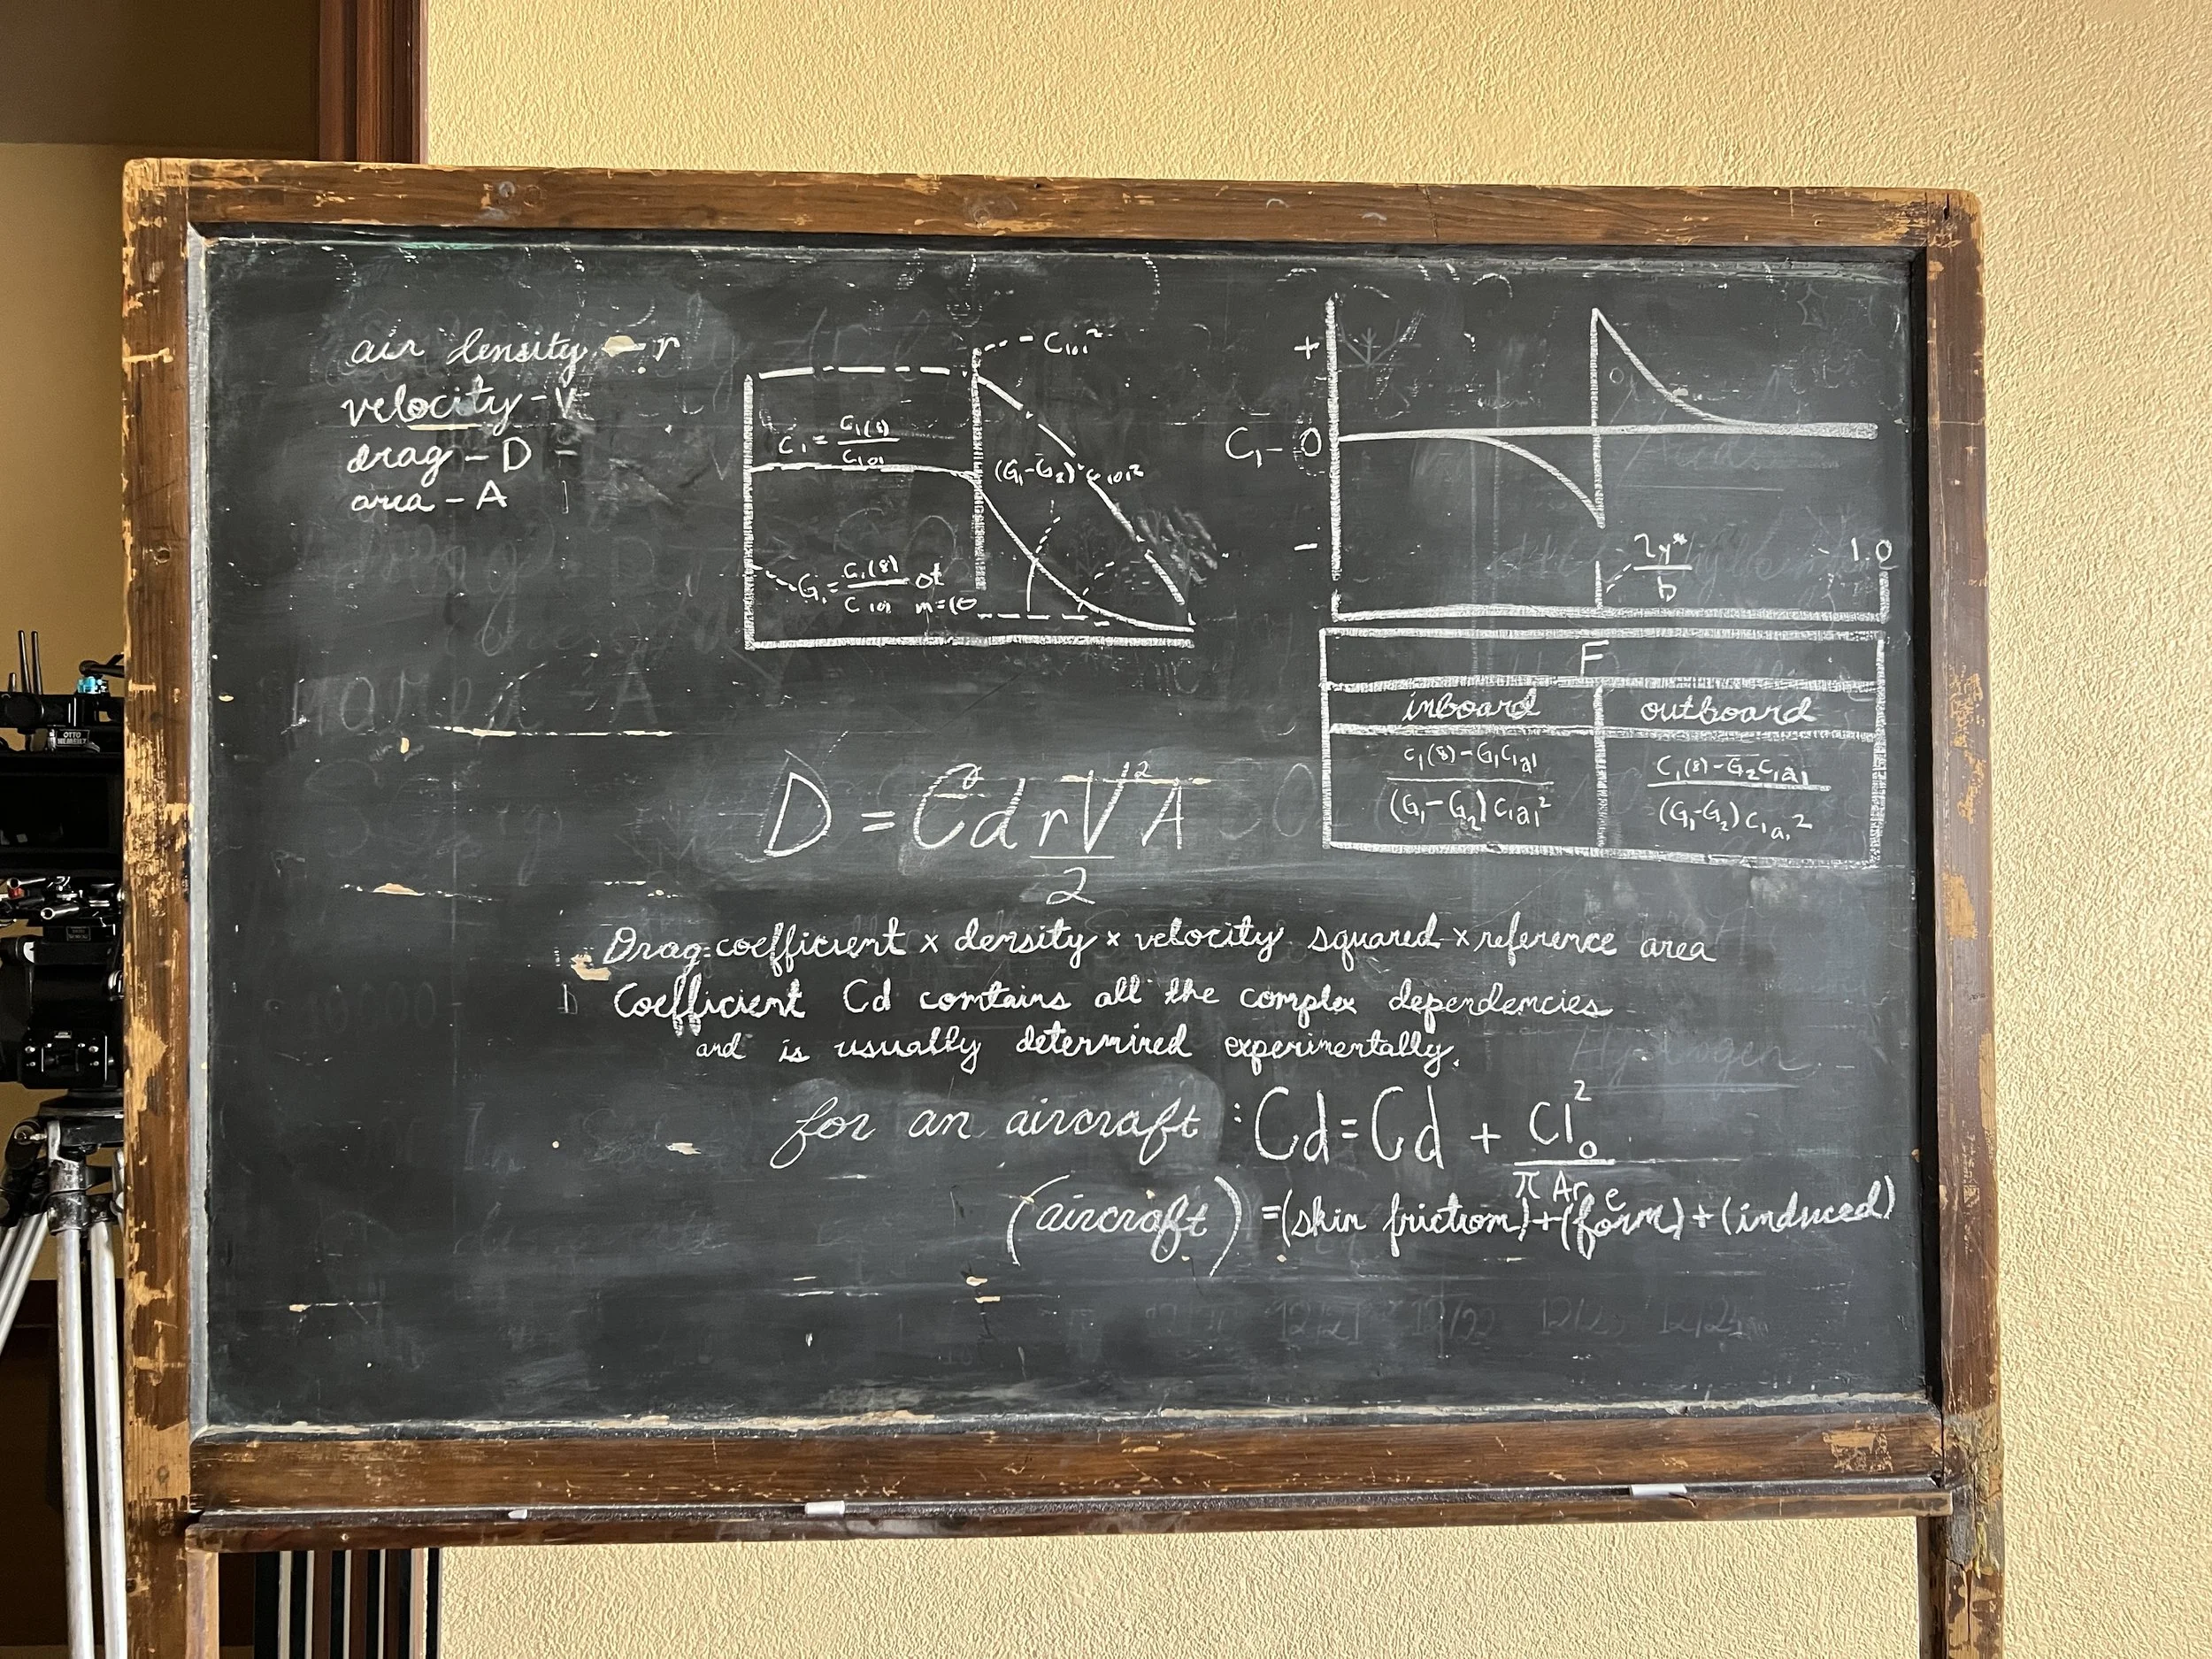 air density - r
velocity - V
drag - D
area - A
C₁₀₁²
C₁ = C₁(8) / C₁₀₁
(G₁-G₂) C₁₀₁²
G₁ = C₁(8) / C₁₀₁ at m=10
+
C₁ - 0
-
2y* / b
1.0
F
inboard outboard
C₁(8) - G₁C₁a₁ / (G₁-G₂) C₁a₁²
C₁(8) - G₂C₁a₁ / (G₁-G₂) C₁a₁²
D = Cd rV² / 2 A
Drag coefficient x density x velocity squared x reference area
Coefficient Cd contains all the complex dependencies
and is usually determined experimentally.
for an aircraft : Cd = Cd + Cl₀² / π Ar e
(aircraft) = (skin friction) + (form) + (induced)
Hydrogen